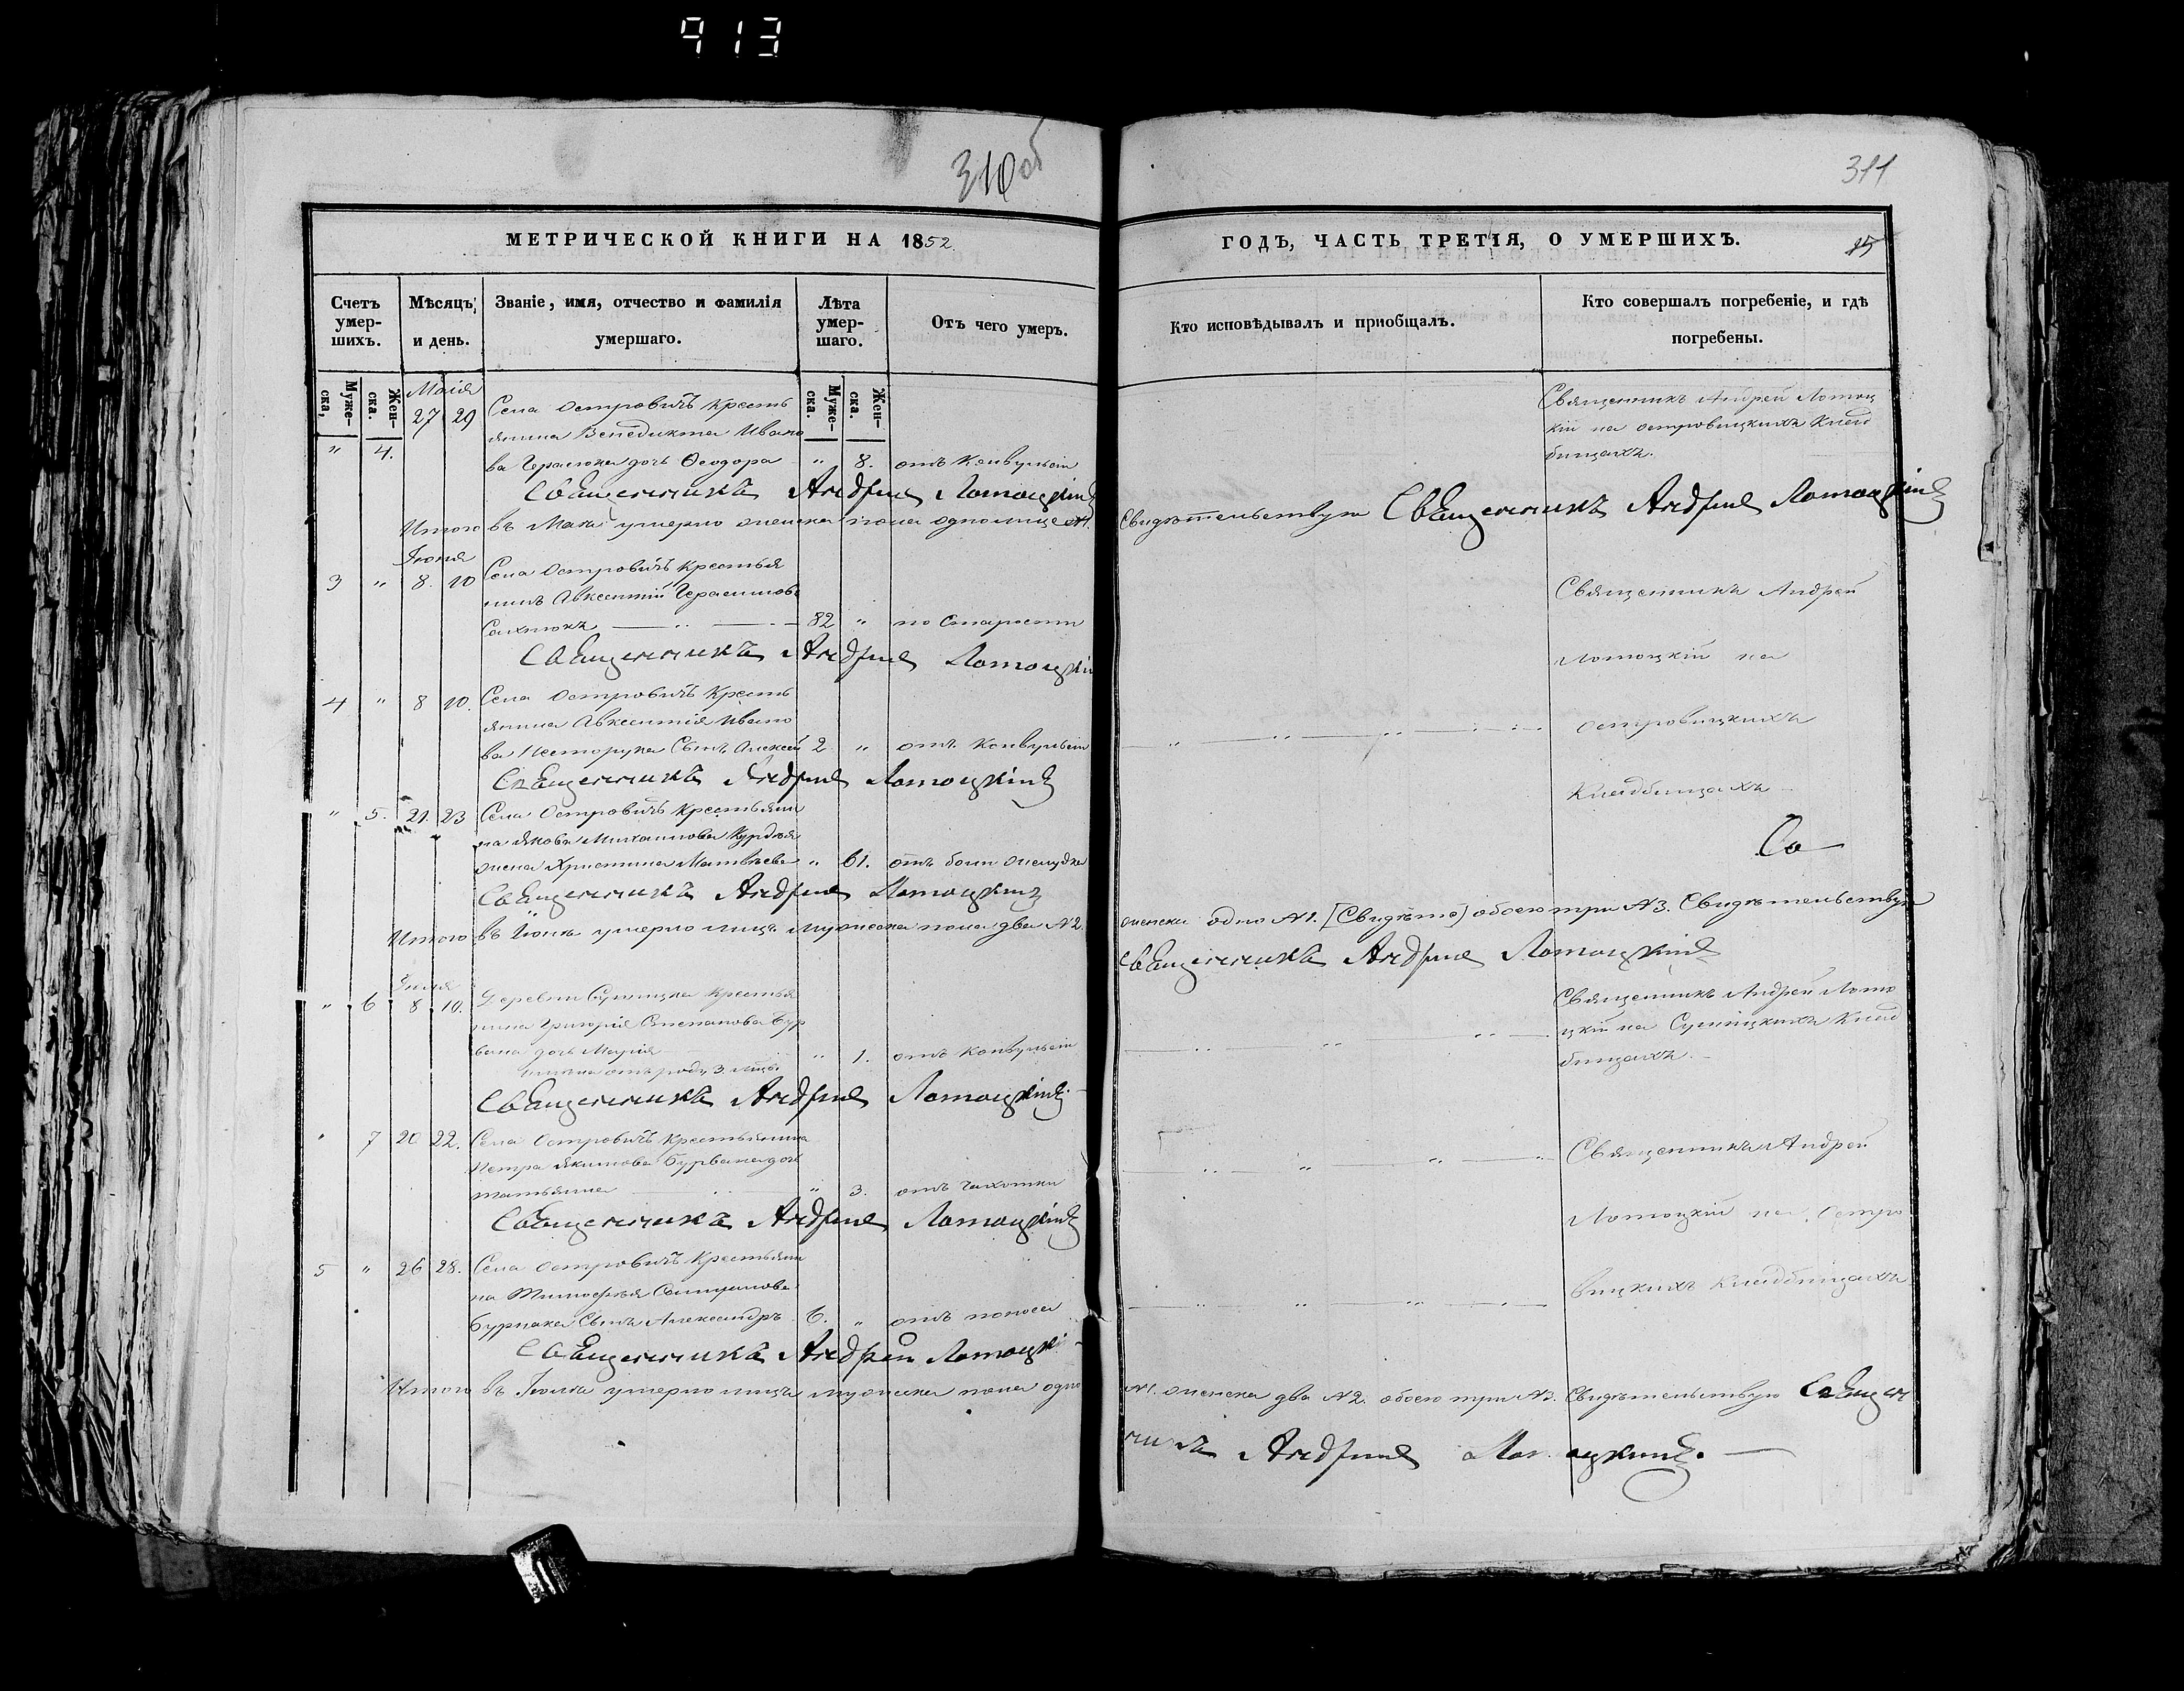 913
310 об
311
МЕТРИЧЕСКОЙ КНИГИ НА 1852
ГОДЪ, ЧАСТЬ ТРЕТІЯ, О УМЕРШИХЪ.
85
Счетъ умер-
шихъ.
Муже-
ска,
Жен-
ска.
Мѣсяцъ,
и день.
Званіе, имя, отчество и фамилія
умершаго.
Лѣта
умер-
шаго.
Муже-
ска.
Жен-
ска.
Отъ чего умеръ.
Кто исповѣдывалъ и пріобщалъ.
Кто совершалъ погребеніе, и гдѣ
погребены.
Маія
" 4. 27 29 Села Островичъ Кресть
янина Венедикта Ивано
ва дочь Ѳеодора " 8. отъ Конвульсіи
Священникъ Андрей Лотоц
кій на островицкихъ Клад
бищахъ.
Священникъ Андрей Лотоцкій
Итого въ Маѣ умерло женска пола одно лице №1.
Свидѣтельствую Священникъ Андрей Лотоцкій
Іюня
3 " 8. 10 Села Островичъ Крестья
нинъ Авксентій Герасимовъ
82 " по Старости
Священникъ Андрей
Священникъ Андрей Лотоцкій
Лотоцкій на
4 " 8 10. Села Островичъ Кресть
янина Авксентія Ивано
ва Несторука Сынъ Алексей 2 " отъ Конвульсіи
островицкихъ
Священникъ Андрей Лотоцкій
Кладбищахъ
" 5. 21. 23 Села Островичъ Крестьяни
на Якова Михаилова
жена Христина Матвѣева " 61. отъ боли желудка
Священникъ Андрей Лотоцкій
Итого въ Іюнѣ умерло лицъ мужеска пола два №2
женска одно №1. [Свидѣте] обоего три №3. Свидѣтельствую
Священникъ Андрей Лотоцкій
Іюля
" 6 8 10. Деревни Крестья
нина Григорія Степанова Бур
бана дочь Марія " 1. отъ Конвульсіи
Священникъ Андрей Лото
цкій на Клад
бищахъ.
Священникъ Андрей Лотоцкій
" 7 20 22. Села Островичъ Крестьянина
Петра Якимова Бурбана дочь
Татьяна " 3. отъ чахотки
Священникъ Андрей
Священникъ Андрей Лотоцкій
Лотоцкій на Остро
5 " 26 28. Села Островичъ Крестьяни
на Тимофея
Сынъ Александръ 6. " отъ поноса
вицкихъ Кладбищахъ
Священникъ Андрей Лотоцкі
Итого въ Іюлѣ умерло лицъ мужеска пола одно
№1. женска два №2. обоего три №3. Свидѣтельствую Священ
никъ Андрей Лотоцкий.